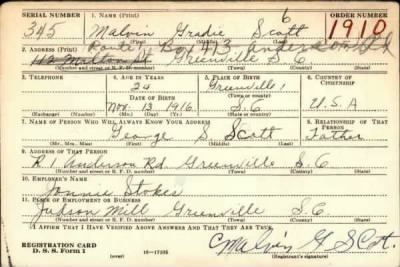 SERIAL NUMBER 1. NAME (Print) ORDER NUMBER
345 Malvin Gradie Scott 1910
(First) (Middle) (Last)
6
Route Box 413 Anderson Rd
2. ADDRESS (Print)
42 Melton St Greenville S C
(Number and street or R. F. D. number) (Town) (County) (State)
3. TELEPHONE 4. AGE IN YEARS 5. PLACE OF BIRTH 6. COUNTRY OF CITIZENSHIP
24 Greenville
DATE OF BIRTH (Town or county)
Nov. 13 1916 S.C U.S.A
(Exchange) (Number) (Mo.) (Day) (Yr.) (State or country)
7. NAME OF PERSON WHO WILL ALWAYS KNOW YOUR ADDRESS 8. RELATIONSHIP OF THAT PERSON
George S Scott Father
(Mr., Mrs., Miss) (First) (Middle) (Last)
9. ADDRESS OF THAT PERSON
R 1 Anderson Rd Greenville S.C
(Number and street or R. F. D. number) (Town) (County) (State)
10. EMPLOYER'S NAME
Jonnie Stokes
11. PLACE OF EMPLOYMENT OR BUSINESS
Judson Mill Greenville S.C.
(Number and street or R. F. D. number) (Town) (County) (State)
I AFFIRM THAT I HAVE VERIFIED ABOVE ANSWERS AND THAT THEY ARE TRUE.
REGISTRATION CARD
D. S. S. Form 1 (over) 16-17105 Malvin G Scot.
(Registrant's signature)